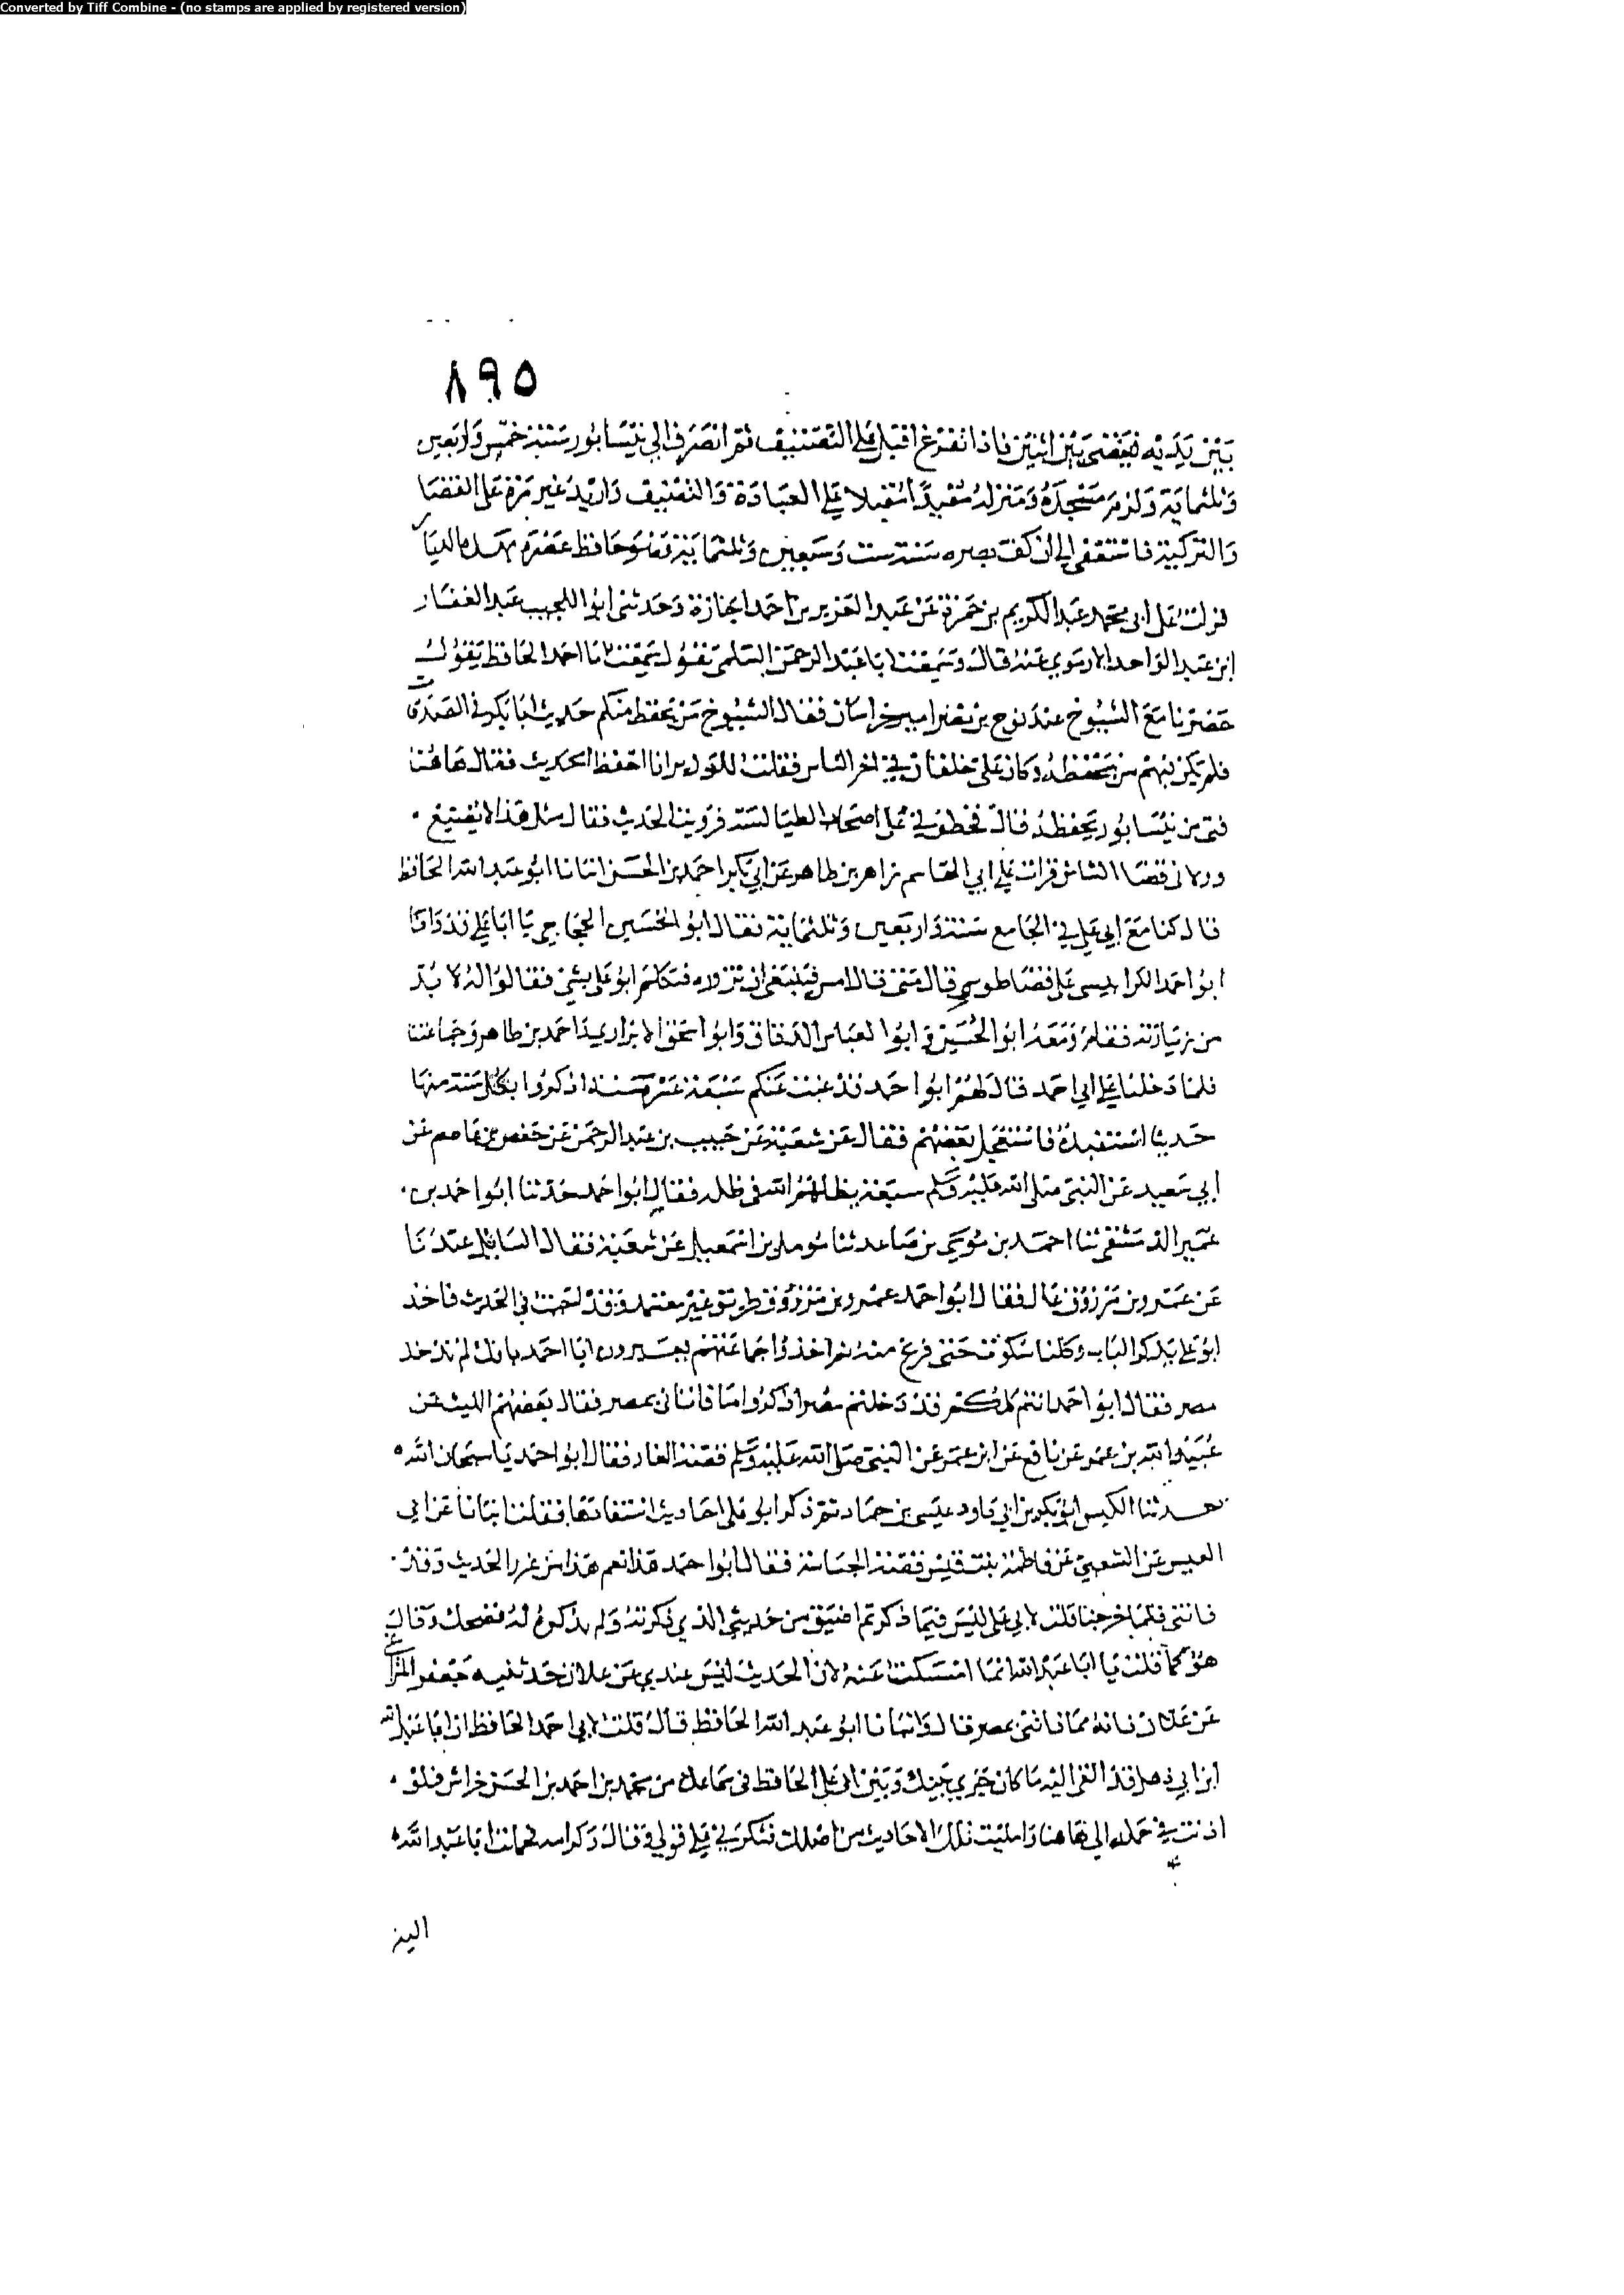 Converted by Tiff Combine - (no stamps are applied by registered version)
٨٩٥
بين يديه فيقضى بين اثنين فاذا تفرغ اقبل على التصنيف ثم انصرف الى نيسابور سنة خمس واربعين
وثلثماية ولزم مسجده ومنزله مفيدا مقبلا على العبادة والتصنيف واريد غير مرة على القضا
والتزكية فاستعفى الى ان كف بصره سنة ست وسبعين وثلثماية وهو حافظ عصره بهذه الديار
قرات على ابى محمد عبد الكريم بن حمزة عن عبد العزيز بن احمد اجازة وحدثنى ابو النجيب عبد الغفار
ابن عبد الواحد الارموي عنه قال وسمعت ابا عبد الرحمن السلمى يقول سمعت ابا احمد الحافظ يقول
حضرنا مع الشيوخ عند نوح بن نصر امير خراسان فقال الشيوخ من يحفظ منكم حديث ابا بكر فى الصدقات
فلم يكن فيهم من يحفظه وكان على خلقان في اخر الناس فقلت للوزير انا احفظ الحديث فقال هاهنا
فتى من نيسابور يحفظه قال فخطوت على اصحاب الطيالسة فرويت الحديث فقال مثل هذا لا يضيع
وولانى قضا الشاش قرات على ابي القاسم زاهر بن طاهر عن ابى بكر احمد بن الحسن انبانا ابو عبد الله الحافظ
قال كنا مع ابي علي في الجامع سنة اربعين وثلثماية فقال ابو الحسين الحجاجي يا ابا علي قد وافا
ابو احمد الكرابيسى على قضا طوس قال متى قال امس فينبغى ان نزوره فتكلم ابو على بشئ فقالوا له لا بد
من زيارته فقام ومعه ابو الحسين وابو العباس الدقاق وابو اسحق الابزاري احمد بن طاهر وجماعتنا
فلما دخلنا على ابى احمد قال لهم ابو احمد قد غبت عنكم سبعة عشر سنة اذكروا بكل سنة منها
حديثا استفيده فاستعجل بعضهم فقال عن شعبة عن خبيب بن عبد الرحمن عن حفص بن عاصم عن
ابي سعيد عن النبى صلى الله عليه وسلم سبعة يظلهم الله فى ظله فقال ابو احمد حدثنا ابو احمد بن
عمير الدمشقى نا احمد بن موسى بن صاعد نا مومل بن اسمعيل عن شعبة فقال السائل عندنا
عن عمرو بن مرزوق عال فقال ابو احمد عمرو بن مرزوق طريق غير معتمد وقد لحنت فى الحديث فاخذ
ابو علي يذكر الباب وكلنا سكوت حتى فرغ منه ثم اخذوا جماعتهم يعيرون ابا احمد بانك لم تدخل
مصر فقال ابو احمد انتم كلكم قد دخلتم مصر اذكروا ما فاتنى بمصر فقال بعضهم الليث عن
عبيد الله بن عمر عن نافع عن ابن عمر عن النبى صلى الله عليه وسلم قصة الغار فقال ابو احمد يا سبحان الله
حدثنا الكيس ابو بكر بن ابى داود عيسى بن حماد ثم ذكر ابو على احاديث استفادها فقلنا عن ابي
العميس عن الشعبي عن فاطمة بنت قيس قصة الجساسة فقال ابو احمد هذا نعم هذا من غرر الحديث وقد
فاتنى فلما خرجنا قلت لابي على ليس فيما ذكرتم اضيق من حديثي الذي ذكرته ولم يذكره له فضحك وقال
هو كما قلت يا ابا عبد الله انما امسكت عنه لان الحديث ليس عندي عن علان حدثنيه جعفر المراغي
عن علان فانه مما فاتنى بمصر قال وانبانا ابو عبد الله الحافظ قال قلت لابي احمد الحافظ ان ابا عبد الله
ابن ابي ذهل قد القى اليه ما كان جرى بينك وبين ابى علي الحافظ فى سماعك من محمد بن احمد بن الحسن خراش فلو
اذنت في حمله الي هاهنا وامليت تلك الاحاديث من اصلك فشكرني على قولي وقال وكرامة فحملت ابا عبد الله
اليه